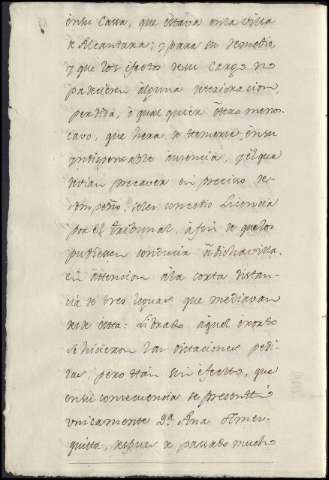 en su Casa, que estava en la villa
de Alcantara; y para su remedio
y que los efectos de su Cargo no
padeciesen alguna deterioracion,
perdida, ò qual quiera òtro menos
cavo, que hera de temerse, en su
yndispensable ausencia, y el que
devian precaver en preciso de
sempeño, se les concedio Licencia
por el tribunal, à fin de que los
pudiesen conducir à dicha villa,
en àttencion àla corta distan
cia de tres leguas que mediavan
desde esta: Librado àquel exorto
se hicieron las citaciones pedi
das pero tan sin efecto, que
en su consecuencia se presentò
unicamente Dª Ana
quitta, despues de pasado mucho